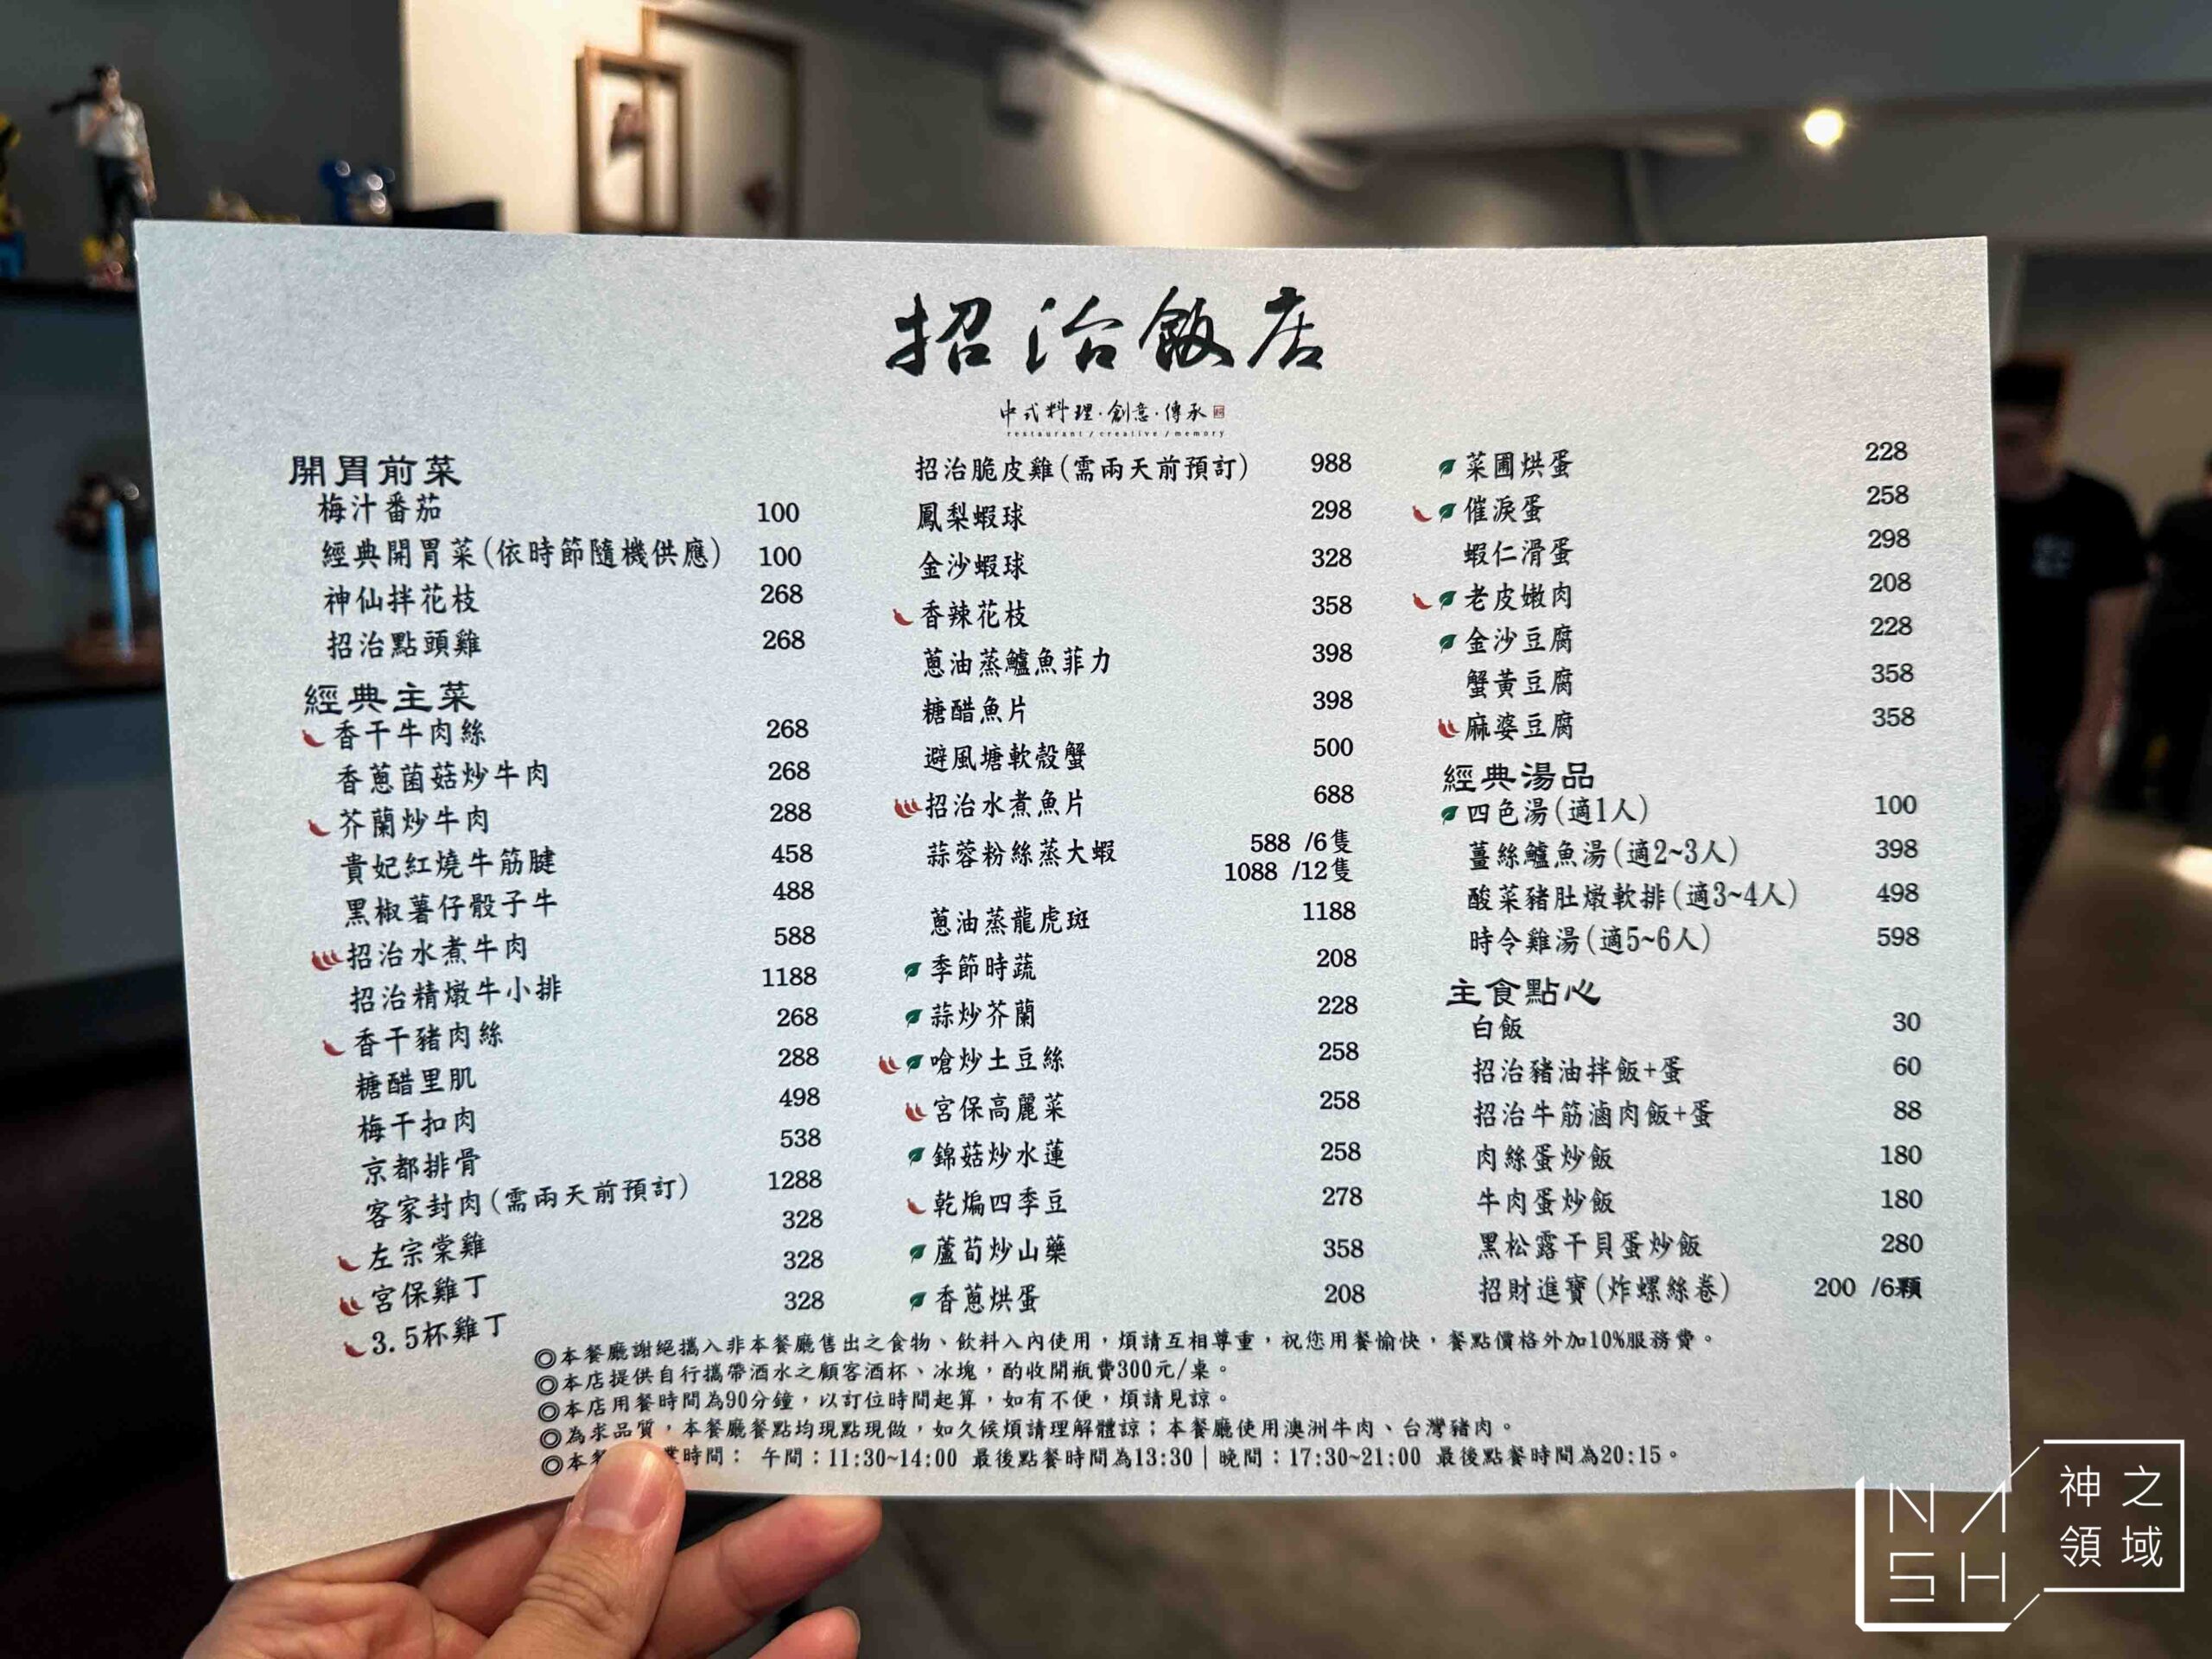 招治飯店
中式料理·創意·傳承
restaurant / creative / memory
開胃前菜
梅汁番茄 100
經典開胃菜(依時節隨機供應) 100
神仙拌花枝 268
招治點頭雞 268
經典主菜
香干牛肉絲 268
香蔥菌菇炒牛肉 268
芥蘭炒牛肉 288
貴妃紅燒牛筋腱 458
黑椒薯仔骰子牛 488
招治水煮牛肉 588
招治精燉牛小排 1188
香干豬肉絲 268
糖醋里肌 288
梅干扣肉 498
京都排骨 538
客家封肉(需兩天前預訂) 1288
左宗棠雞 328
宮保雞丁 328
3.5杯雞丁 328
招治脆皮雞(需兩天前預訂) 988
鳳梨蝦球 298
金沙蝦球 328
香辣花枝 358
蔥油蒸鱸魚菲力 398
糖醋魚片 398
避風塘軟殼蟹 500
招治水煮魚片 688
蒜蓉粉絲蒸大蝦 588 /6隻
1088 /12隻
蔥油蒸龍虎斑 1188
季節時蔬 208
蒜炒芥蘭 228
嗆炒土豆絲 258
宮保高麗菜 258
錦菇炒水蓮 258
乾煸四季豆 278
蘆荀炒山藥 358
香蔥烘蛋 208
菜圃烘蛋 228
催淚蛋 258
蝦仁滑蛋 298
老皮嫩肉 208
金沙豆腐 228
蟹黃豆腐 358
麻婆豆腐 358
經典湯品
四色湯(適1人) 100
薑絲鱸魚湯(適2~3人) 398
酸菜豬肚燉軟排(適3~4人) 498
時令雞湯(適5~6人) 598
主食點心
白飯 30
招治豬油拌飯+蛋 60
招治牛筋滷肉飯+蛋 88
肉絲蛋炒飯 180
牛肉蛋炒飯 180
黑松露干貝蛋炒飯 280
招財進寶(炸螺絲卷) 200 /6顆
◎本餐廳謝絕攜入非本餐廳售出之食物、飲料入內使用，煩請互相尊重，祝您用餐愉快，餐點價格外加10%服務費。
◎本店提供自行攜帶酒水之顧客酒杯、冰塊，酌收開瓶費300元/桌。
◎本店用餐時間為90分鐘，以訂位時間起算，如有不便，煩請見諒。
◎為求品質，本餐廳餐點均現點現做，如久候煩請理解體諒；本餐廳使用澳洲牛肉、台灣豬肉。
◎本餐 業時間： 午間：11:30~14:00 最後點餐時間為13:30｜晚間：17:30~21:00 最後點餐時間為20:15。
NASH
神之領域